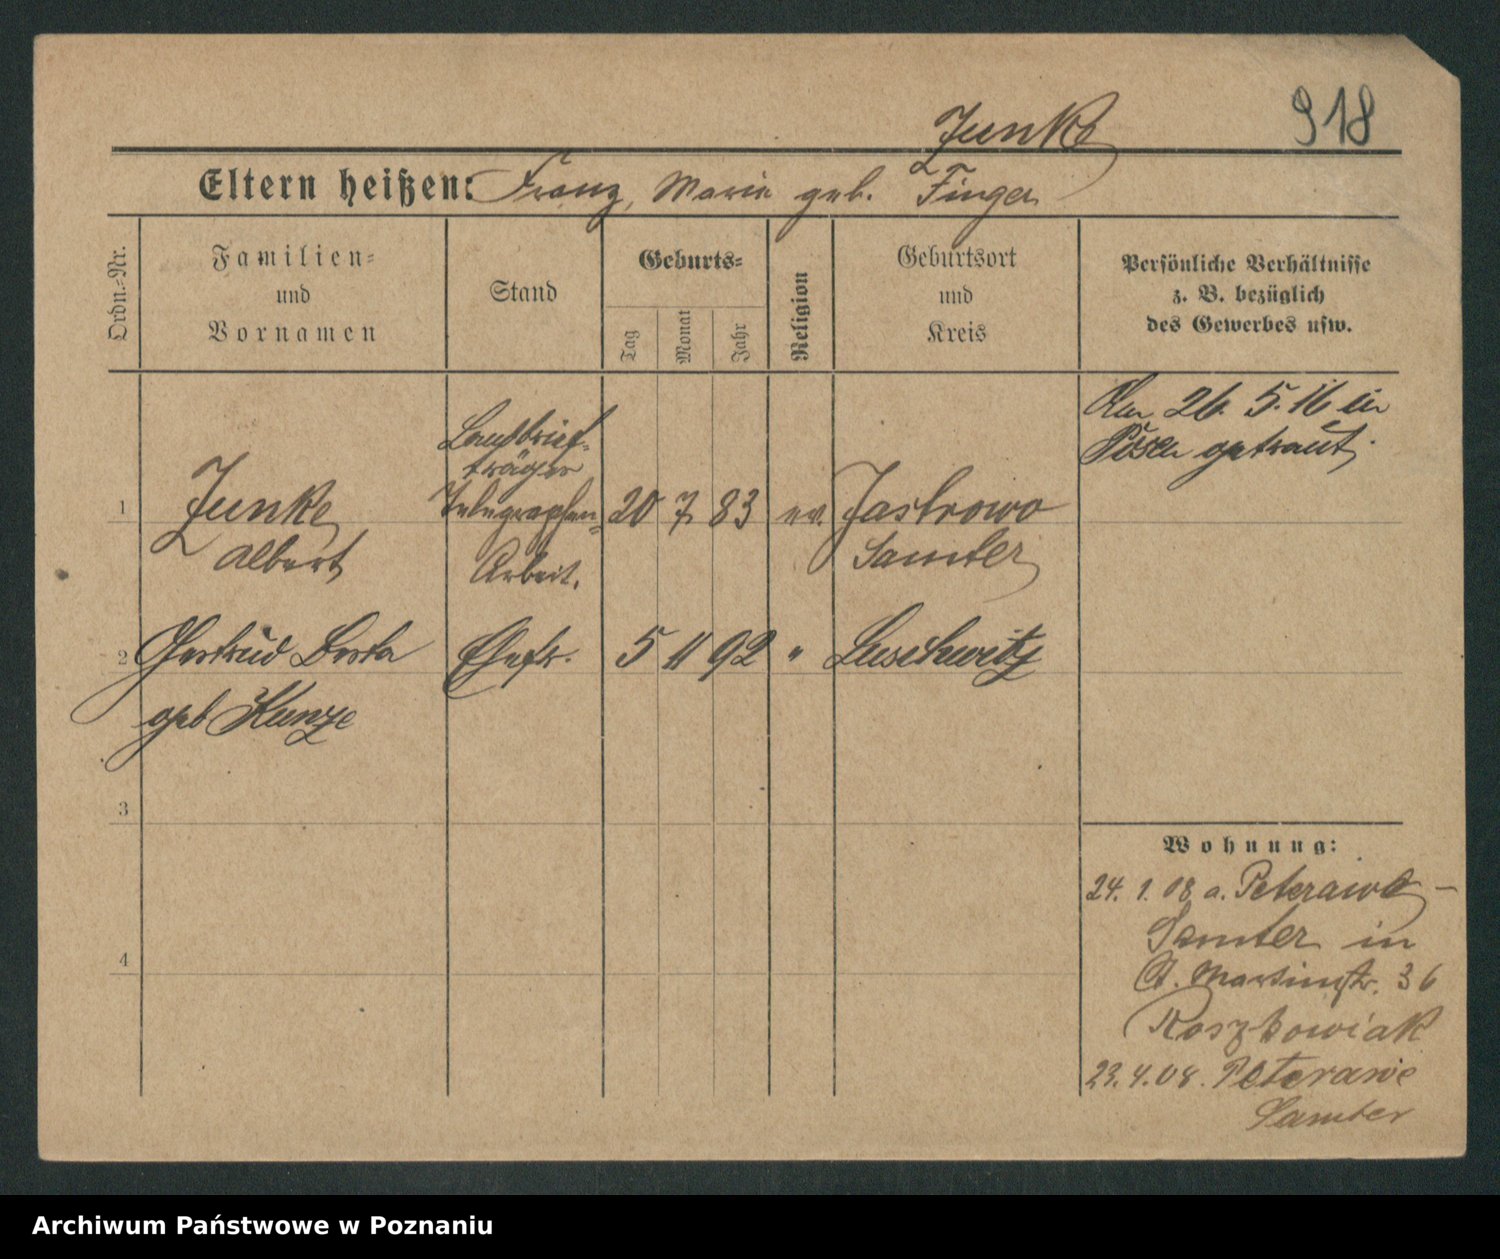 Junke
918
Eltern heißen: Franz, Marie geb. Finger
Ordn.=Nr.
Familien=
und
Vornamen
Stand
Geburts=
Tag
Monat
Jahr
Religion
Geburtsort
und
Kreis
Persönliche Verhältnisse
z. B. bezüglich
des Gewerbes usw.
Am 26. 5. 16 in
Posen getraut.
1
Junke
Albert
Landbrief-
träger
Telegraphen-
Arbeit.
20 7 83 ev. Jastrowo
Samter
2 Gertrud Berta Ehefr. 5 11 92 " Luschwitz
geb Kunze
3
4
Wohnung:
24. 1. 08 a. Peterawe -
Samter in
St. Martinstr. 36
Roszkowiak
23. 4. 08. Peterawe
Samter
Archiwum Państwowe w Poznaniu